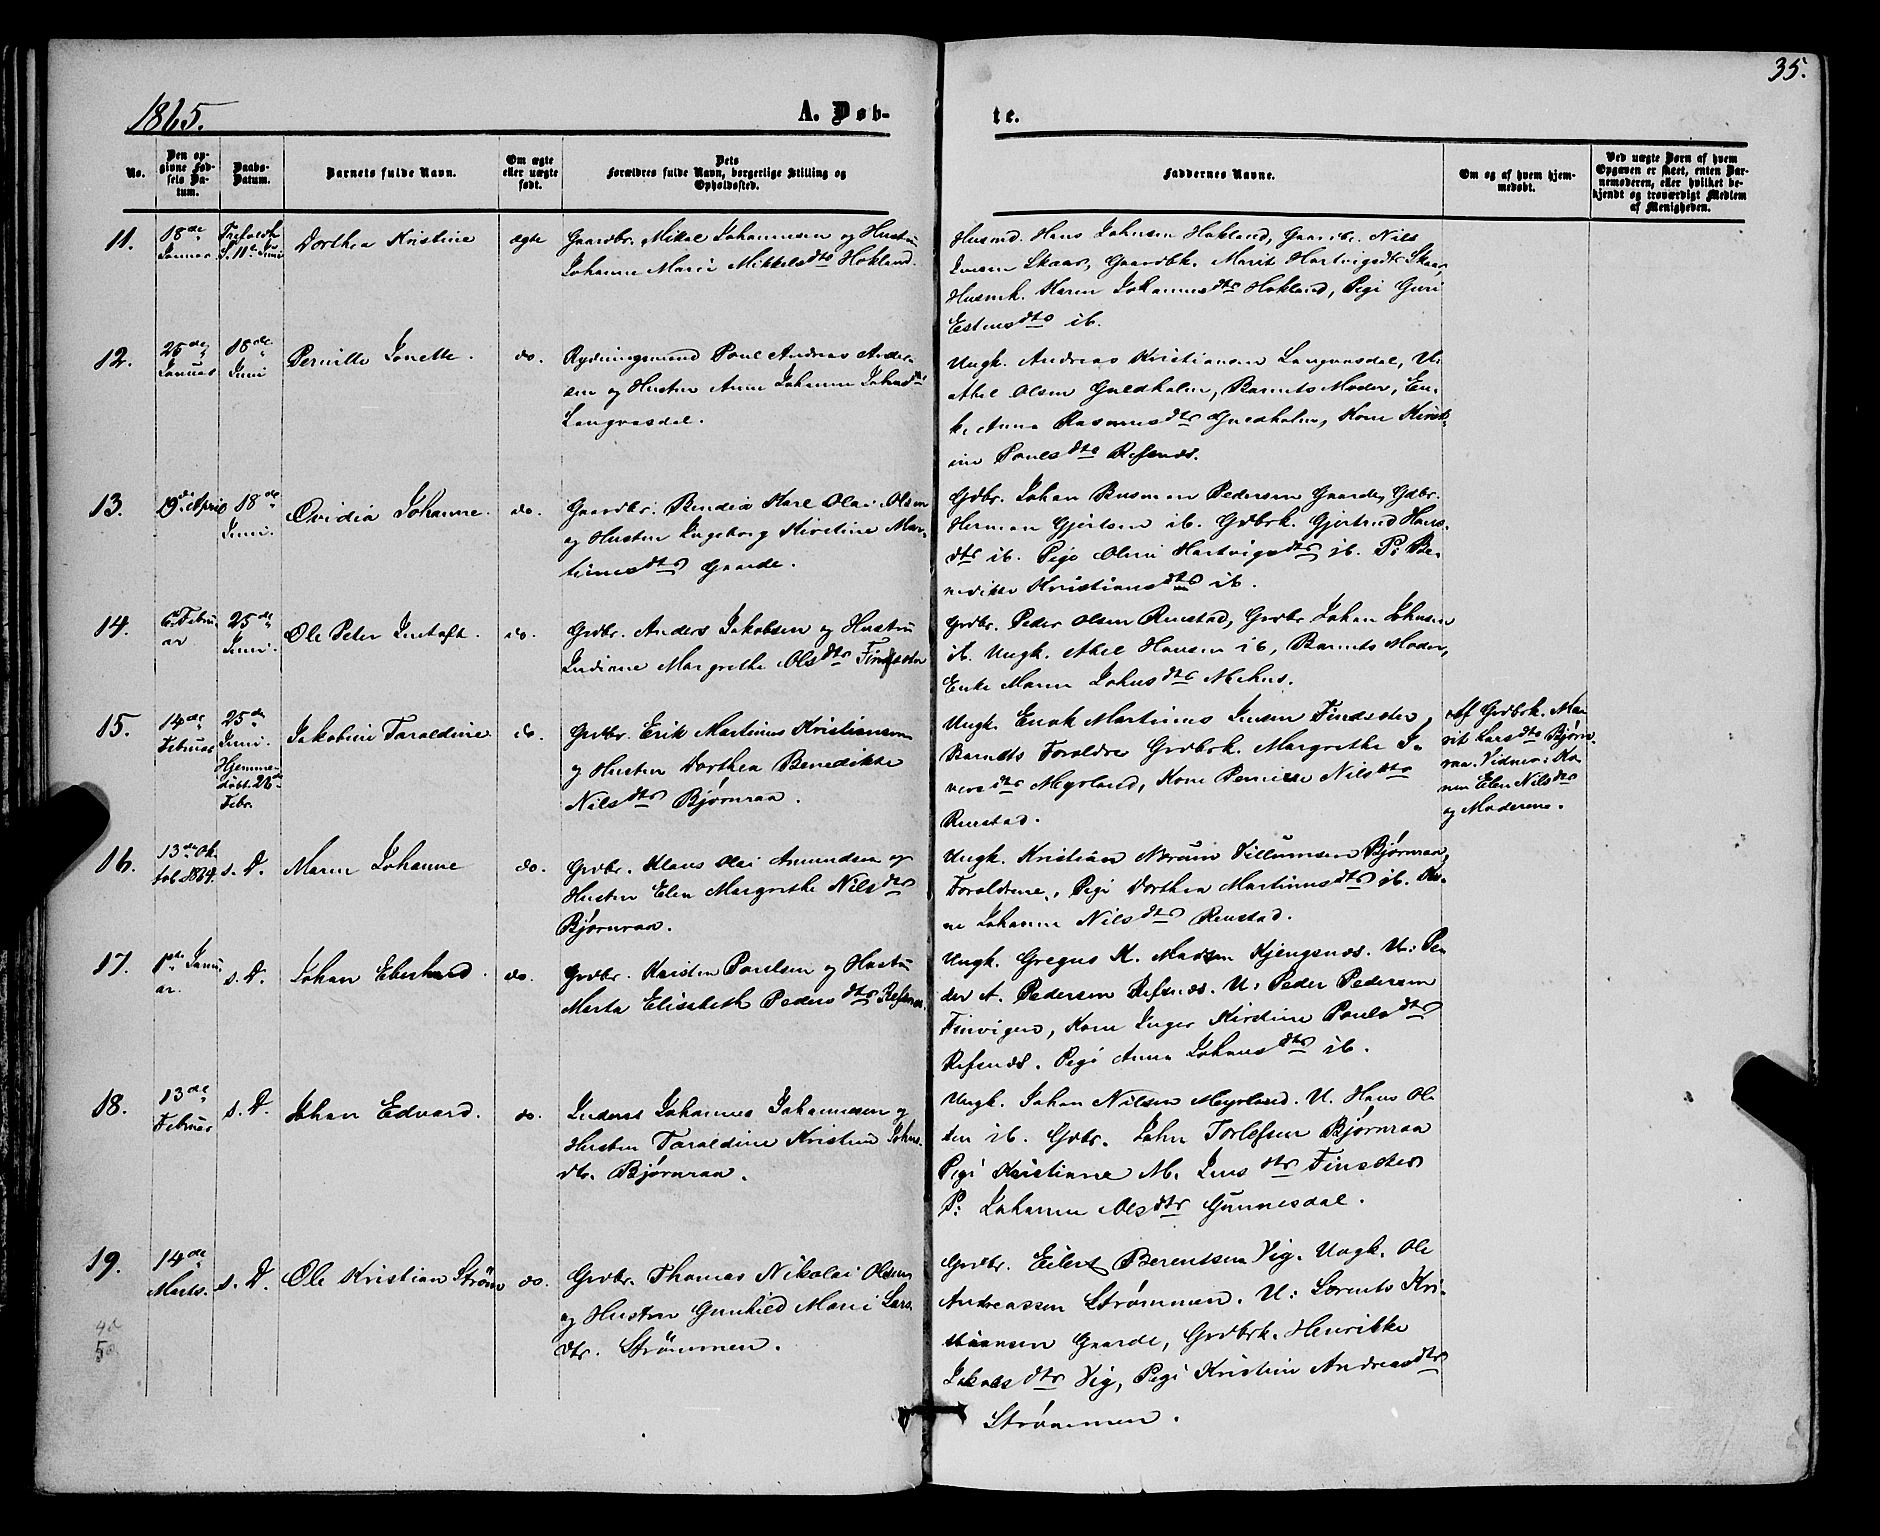 35.
1865.
A. Døb-
te.
No.
Den op-
givne Fød-
sels Da-
tum.
Daabs-
Datum.
Barnets fulde Navn.
Om ægte
eller uægte
født.
Dets
Forældres fulde Navn, borgerlige Stilling og
Opholdssted.
Faddernes Navne.
Om og af hvem hjem-
medøbt.
Ved uægte Børn af hvem
Opgaven er skeet, enten Bar-
nemoderen, eller hvilket be-
kjendt og troværdigt Medlem
af Menigheden.
11.
18de
Januar
11te Juni
Dorthea Kristine
ægte
Gaardbr. Mikal Johannesen og Hustru
Johanne Marie Mikkelsdtr Hokland.
Husmd. Hans Johnsen Hokland, Gaardbr. Nils
Jensen Skaar, Gaardbk. Marit Hartvigsdtr Skaar,
Husmk. Karen Johannesdtr Hokland, Pige Guri
Estensdtr ib.
12.
25de
Januar
18de
Juni
Pernille Jonette.
do.
Rydningsmand Poul Andreas Ander-
sen og Hustru Anne Johanne Johnsdtr
Langvasdal.
Ungk. Andreas Kristiansen Langvasdal, U:
Abel Olsen Guldholm, Barnets Moder, En-
ke Anna Rasmusdtr Guldholm, Kone Kirst-
ine Poulsdtr Refsnæs.
13.
19de April
18de
Juni.
Ovidia Johanne.
do.
Gaardbr. Karl Olai Olsen
og Hustru Ingeborg Kirstine Mar-
tinusdtr Gaarde.
Gdbr. Johan Pedersen Gaarde, Gdbr.
Herman Gjertsen ib. Grdbrk. Gjertrud Hans-
dtr ib. Pige Oline Hartvigsdtr ib. P: Be-
nedikte Kristiansdtr ib.
14.
6te Febru-
ar
25de
Juni.
Ole Peter Jentoft.
do.
Grdbr. Anders Jakobsen og Hustru
Indiane Margrethe Olsdtr Finsæter
Grdbr. Peder Olsen Renstad, Grdbr Johan Johnsen
ib. Ungk. Abel Hansen ib, Barnets Moder,
Enke Maren Johnsdtr Nehus.
15.
14de
Februar
25de
Juni.
Hjemme-
døbt 26de
Febr.
Jakobine Taraldine
do.
Grdbr. Erik Martinus Kristiansen
og Hustru Dorthea Benedikte
Nilsdtr Bjørnraa.
Ungk. Enok Martinus Jensen Finsæter,
Barnets Forældre Grdbrk. Margrethe I-
versdtr Myrland, Kone Pernille Nilsdtr
Renstad.
Af Grdbrk. Ma-
rit Larsdtr Bjørn-
raa. Vidner: Ko-
nen Elen Nilsdtr
og Moderene.
16.
13de Ok-
tob. 1864.
s. D.
Maren Johanne
do.
Grdbr. Klaus Olai Amundsen og
Hustru Elen Margrethe Nilsdtr
Bjørnraa.
Ungk. Kristian Norum Villumsen Bjørnraa,
Forældrene, Pige Dorthea Martinusdtr ib. Ko-
ne Johanne Nilsdtr Renstad.
17.
1ste Janu-
ar.
s. D.
Johan Eberhard.
do.
Grdbr. Karsten Poulsen og Hustru
Marta Elisabeth Pedersdtr Refsnæs.
Ungk. Gregus K. Madsen Kjengsnæs. U: Pe-
der A. Pedersen Refsnæs. U: Peder Pedersen
Finvigen, Kone Inger Kirstine Poulsdtr
Refsnæs. Pige Anna Johansdtr ib.
18.
13de
Februar
s. D.
Johan Edvard.
do.
Inderst Johannes Johannesen og
Hustru Taraldine Kristine Johns-
dtr. Bjørnraa.
Ungk. Johan Nilsen Myrland. U. Hans Ol-
sen ib. Grdbr. John Torlefsen Bjørnraa
Pige Kristiane M. Jensdtr Finsæter
P: Johanne Olsdtr Gunnesdal.
19.
14de
Marts.
s. D.
Ole Kristian Strøm
do.
Grdbr. Thomas Nikolai Olsen
og Hustru Gunhild Marie Lars-
dtr. Strømmen.
Grdbr. Eilert Berentsen Vig. Ungk. Ole
Andreassen Strømmen. U: Lorents Kri-
stiansen Gaarde, Grdbrk. Henrikke
Jakobsdtr Vig, Pige Kristine Andreasdtr
Strømmen.